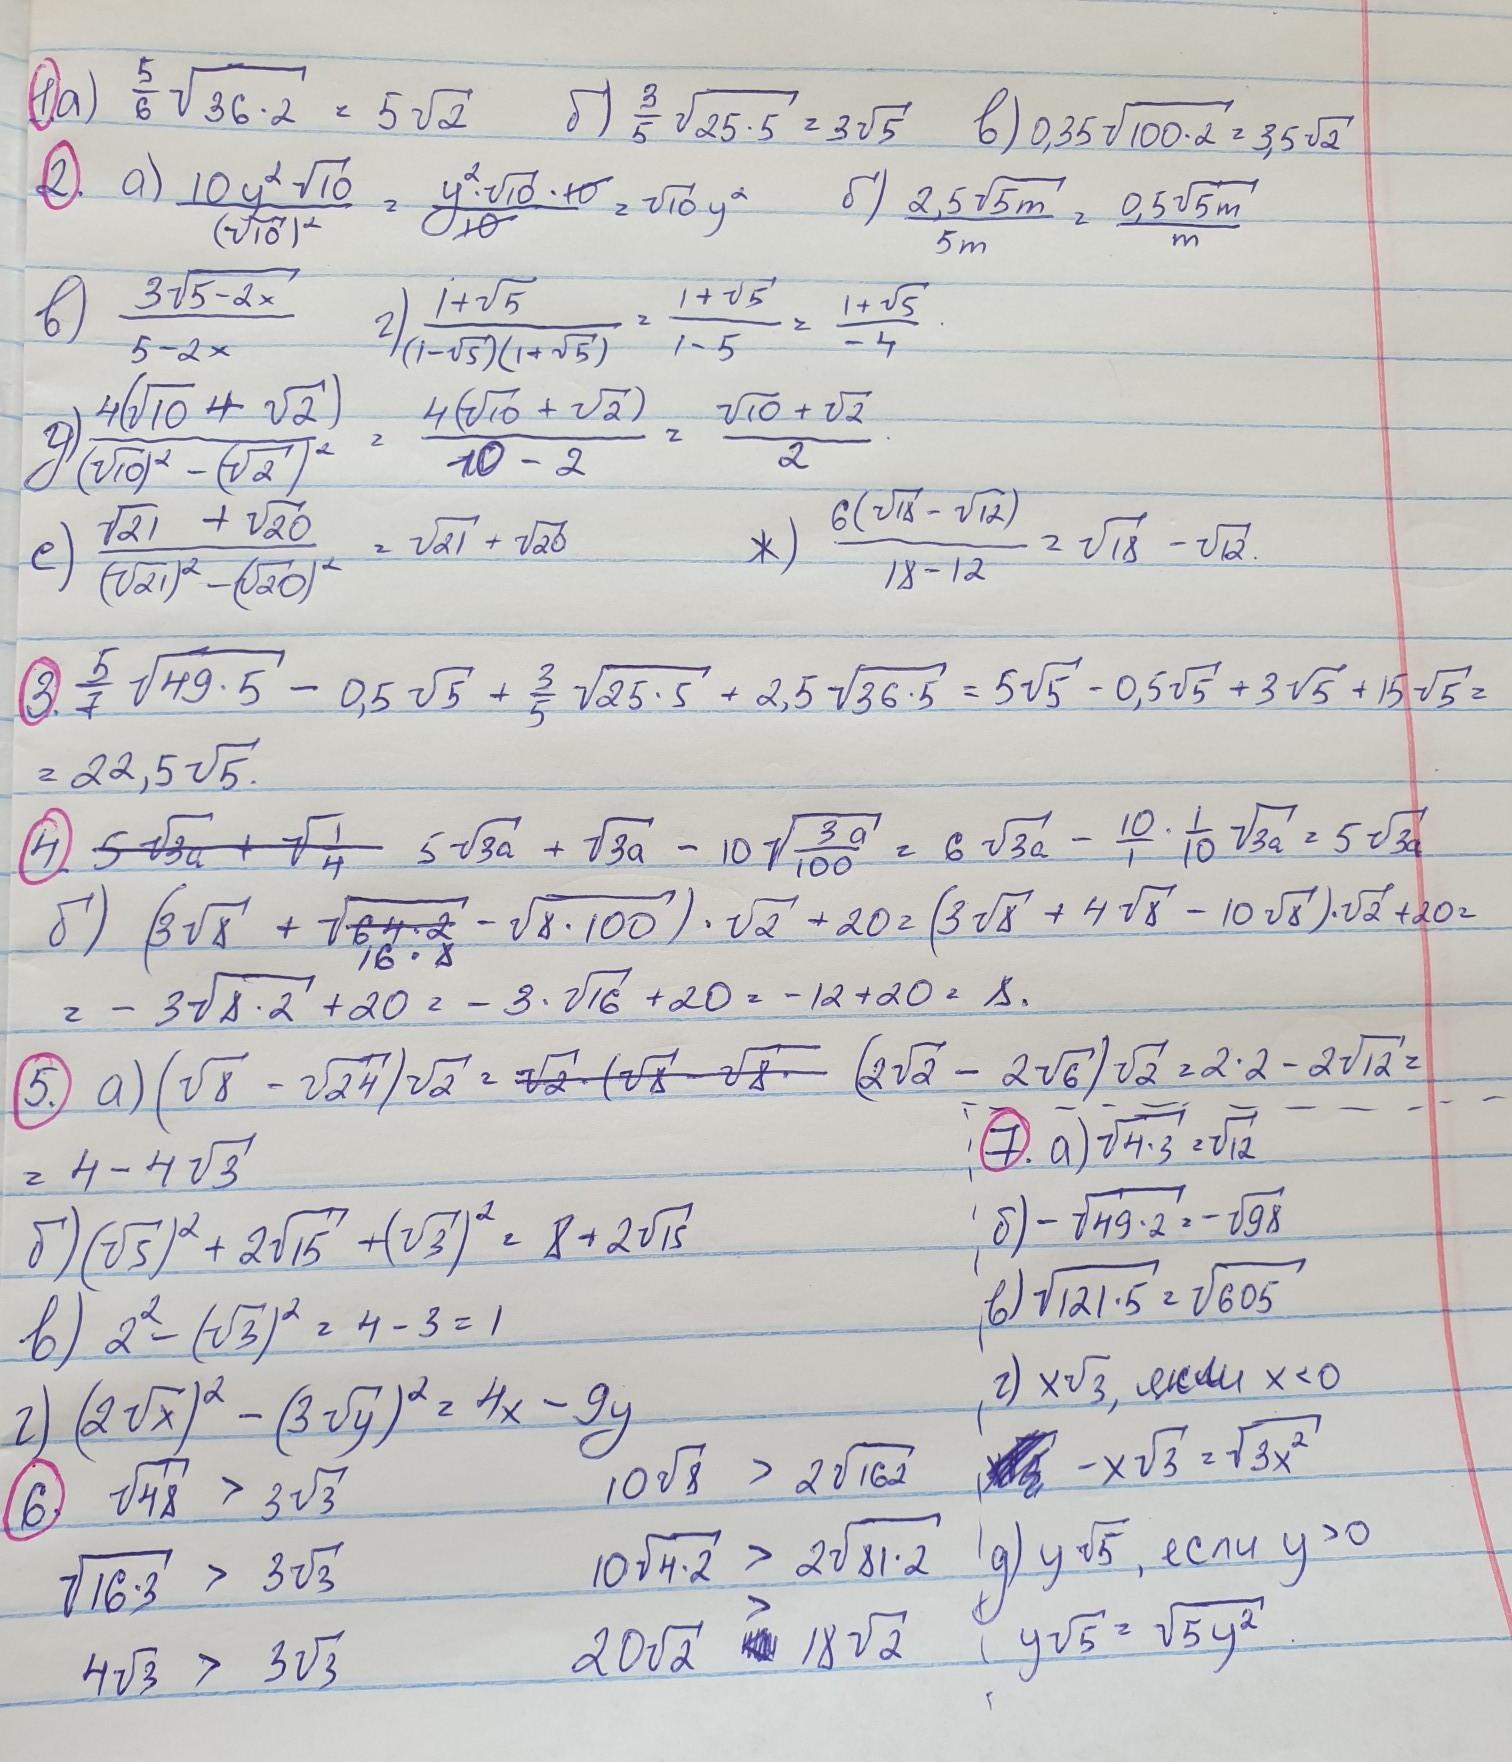 1. а) 5/6 √(36·2) = 5√2 б) 3/5 √(25·5) = 3√5 в) 0,35√(100·2) = 3,5√2
2. а) 10y²√10/(√10)² = y²·√10·10/10 = √10y² б) 2,5√(5m)/5m = 0,5√(5m)/m
в) 3√(5-2x)/(5-2x) г) (1+√5)/((1-√5)(1+√5)) = (1+√5)/(1-5) = (1+√5)/-4.
д) 4(√10 + √2)/((√10)² - (√2)²) = 4(√10 + √2)/(10 - 2) = (√10 + √2)/2.
е) (√21 + √20)/((√21)² - (√20)²) = √21 + √20 ж) 6(√18 - √12)/(18-12) = √18 - √12.
3. 5/7 √(49·5) - 0,5√5 + 3/5 √(25·5) + 2,5√(36·5) = 5√5 - 0,5√5 + 3√5 + 15√5 =
= 22,5√5.
4. 5√3a + √(1/4) 5√3a + √3a - 10√(3a/100) = 6√3a - 10/1 · 1/10 √3a = 5√3a
б) (3√8 + √(64·2) 16·8 - √(8·100))·√2 + 20 = (3√8 + 4√8 - 10√8)·√2 + 20 =
= - 3√(8·2) + 20 = - 3·√16 + 20 = -12 + 20 = 8.
5. а) (√8 - √24)√2 = √2·(√8 - √8· (2√2 - 2√6)√2 = 2·2 - 2√12 =
= 4 - 4√3
б) (√5)² + 2√15 + (√3)² = 8 + 2√15
в) 2² - (√3)² = 4 - 3 = 1
г) (2√x)² - (3√y)² = 4x - 9y
6. √48 > 3√3 10√8 > 2√162
√(16·3) > 3√3 10√(4·2) > 2√(81·2)
4√3 > 3√3 20√2 > 18√2
7. а) √(4·3) = √12
б) -√(49·2) = -√98
в) √(121·5) = √605
г) x√3, если x<0
-x√3 = √(3x²)
д) y√5, если y>0
y√5 = √(5y²).